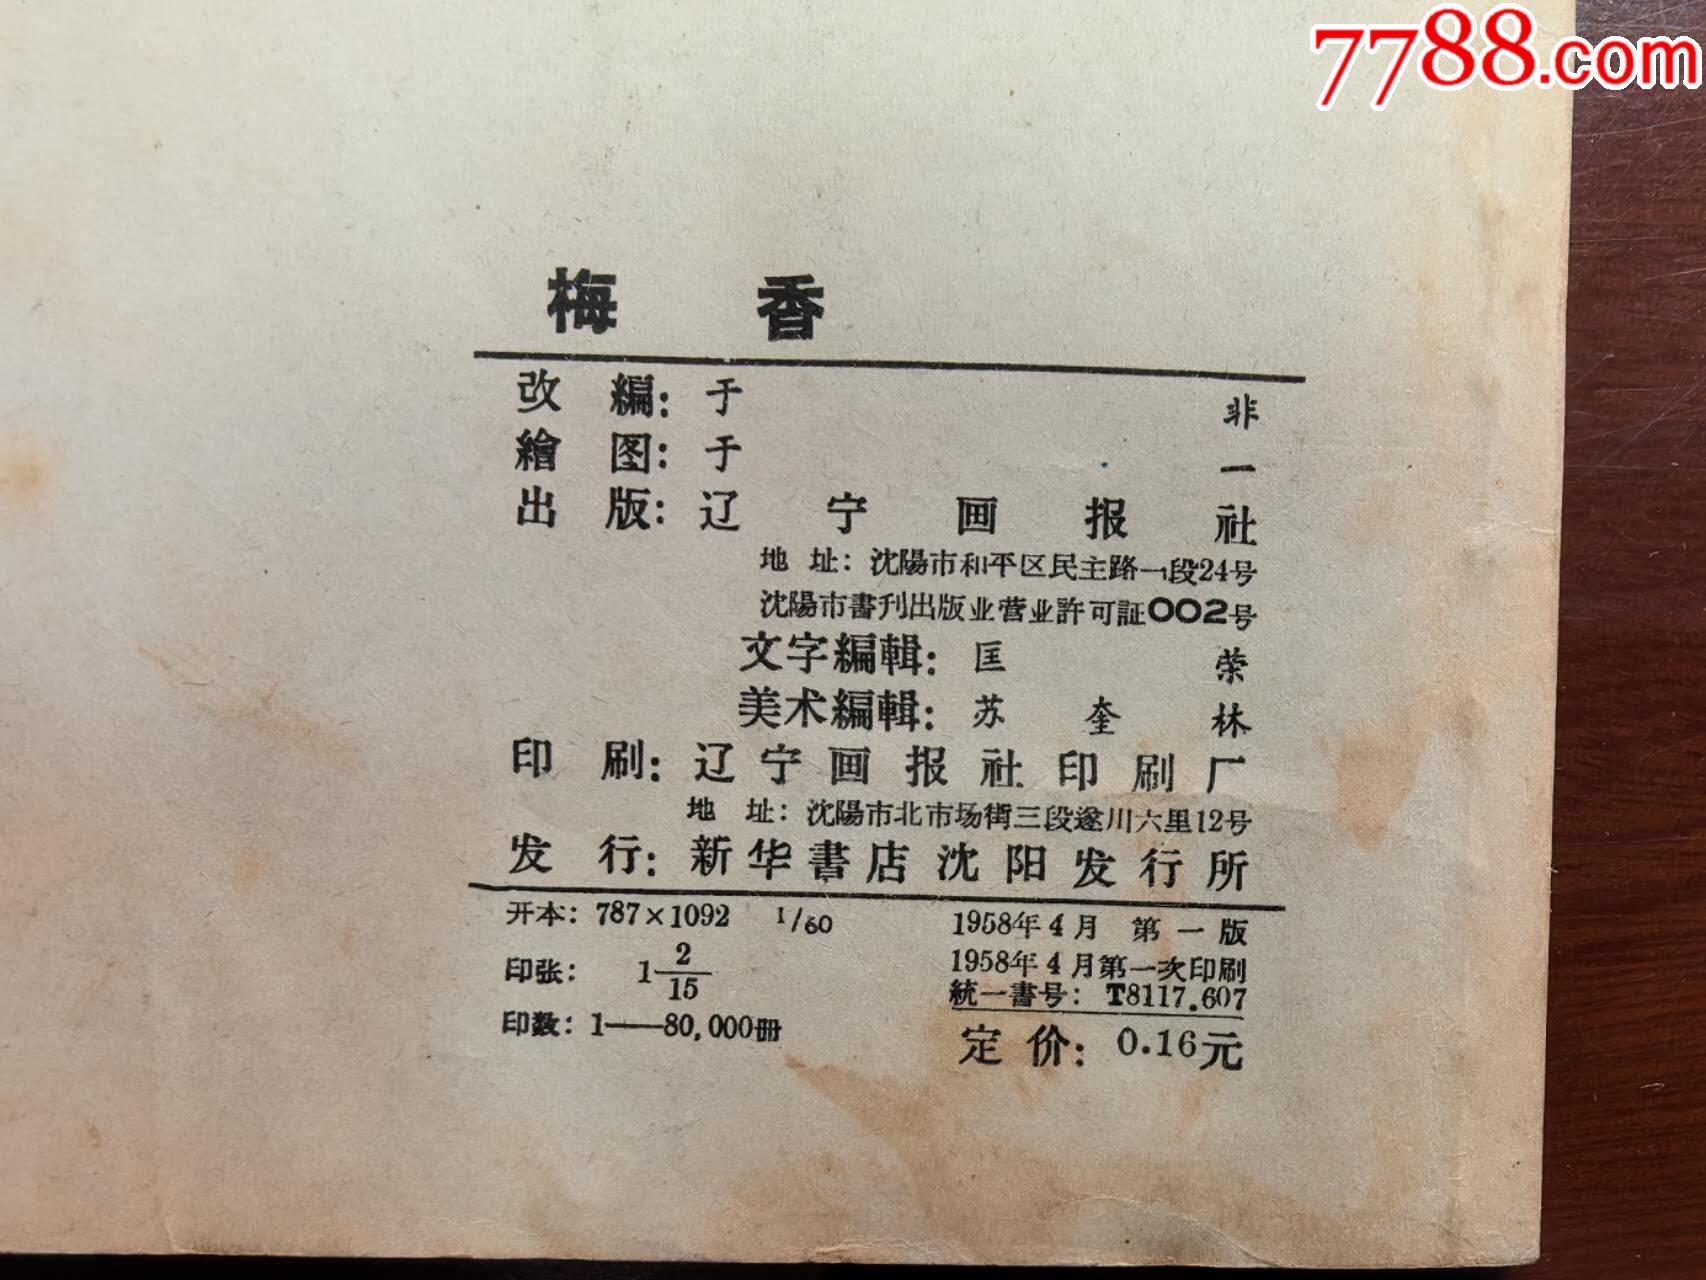 7788.com
梅香
改編：于非
繪图：于一
出版：辽宁画报社
地址：沈陽市和平区民主路一段24号
沈陽市書刊出版业营业許可証002号
文字編輯：匡荣
美术編輯：苏奎林
印刷：辽宁画报社印刷厂
地址：沈陽市北市场街三段遂川六里12号
发行：新华書店沈阳发行所
开本：787×1092 1/60 1958年4月第一版
印张：1 2/15 1958年4月第一次印刷
統一書号：T8117.607
印数：1——80,000册 定价：0.16元